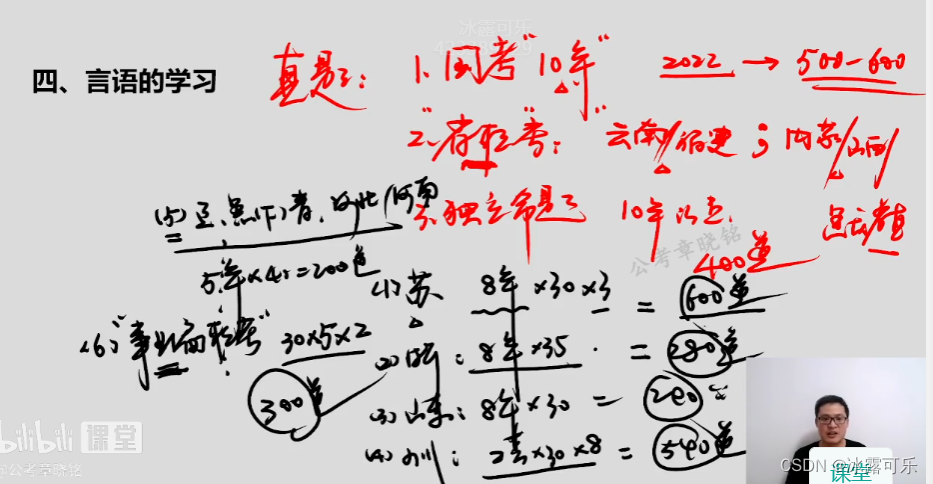 冰露可乐
四、言语的学习
真题: 1.国考"10年" 2022 → 500-600
2."省联"考: 云南/福建; 内蒙/山西/
3.独立命题 10年以上
400道
5年×4=200道
(1)苏 8年×30×3 = 600道
(6)"事业偏联考" 30×5×2
300道
(2)浙: 8年×35 = 280道
(3)山东: 8年×30 = 240
(4)川: ×30×8 = 540道
公考章晓铭
bilibili 课堂
公考章晓铭
CSDN @冰露可乐
课堂